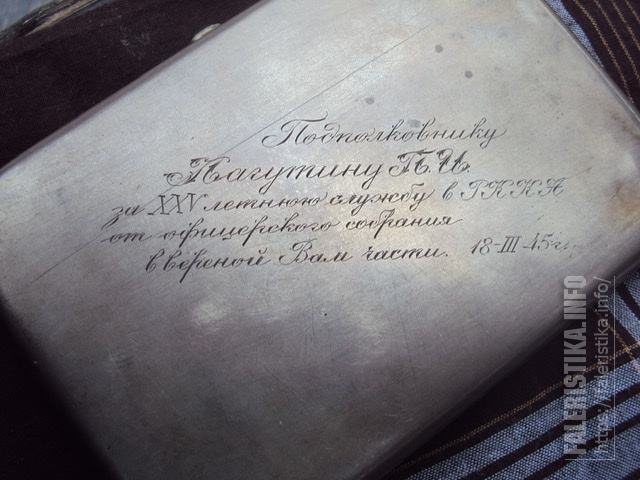 Подполковнику
Лагутину П.И.
за XXV летнюю службу в РККА
от офицерского собрания
вверенoй Вам части. 18-III-45 г.
FALERISTIKA.INFO
https://faleristika.info/